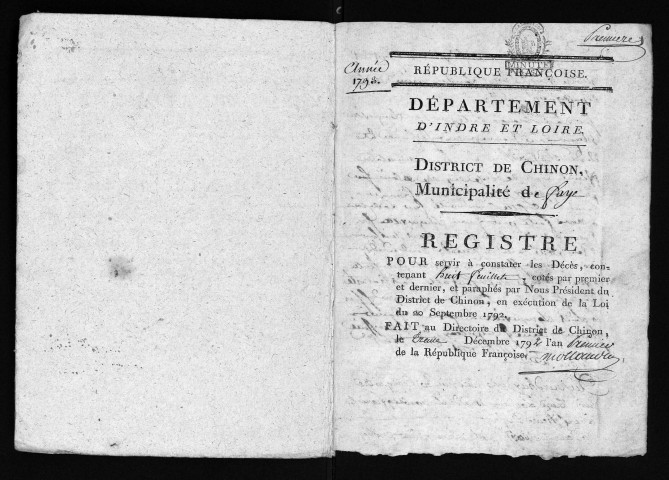 Première
MINUTE
Année
1793.
RÉPUBLIQUE FRANÇOISE.
DÉPARTEMENT
D'INDRE ET LOIRE.
DISTRICT DE CHINON.
Municipalité de Faye
REGISTRE
POUR servir à constater les Décès, con-
tenant huit feuillets, cotés par premier
et dernier, et paraphés par Nous Président du
District de Chinon, en exécution de la Loi
du 20 Septembre 1792.
FAIT au Directoire du District de Chinon,
le treize Décembre 1792 l'an premier
de la République Françoise.